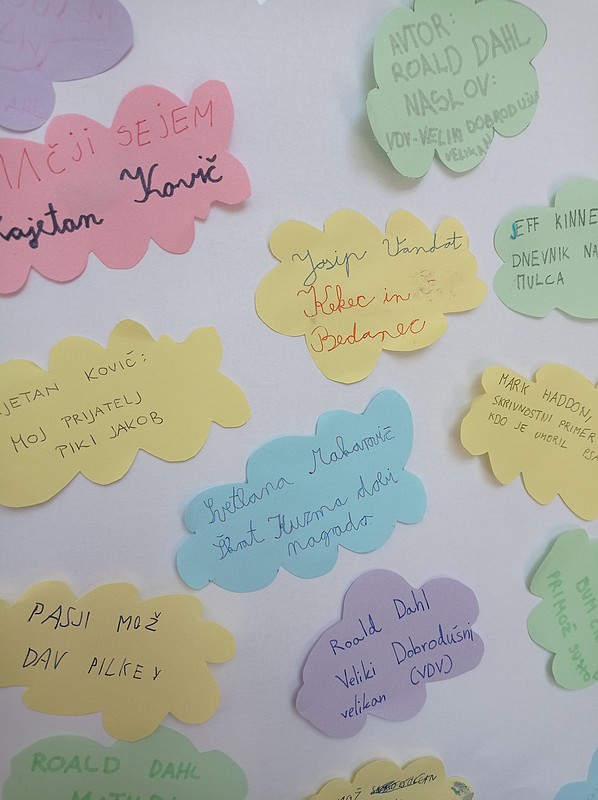 AVTOR:
ROALD DAHL
NASLOV:
VDV-VELIKI DOBRODUŠNI
VELIKAN
MAČJI SEJEM
Kajetan Kovič
Josip Vandot
Kekec in
Bedanec
JEFF KINNE
DNEVNIK NA
MULCA
JETAN KOVIČ:
MOJ PRIJATELJ
PIKI JAKOB
MARK HADDON,
SKRIVNOSTNI PRIMER
KDO JE UMORIL PSA
Svetlana Makarovič
Škrat Kuzma dobi
nagrado
PASJI MOŽ
DAV PILKEY
Roald Dahl
Veliki Dobrodušni
velikan (VDV)
PRIMOŽ SUHO
ROALD DAHL
MATILDA